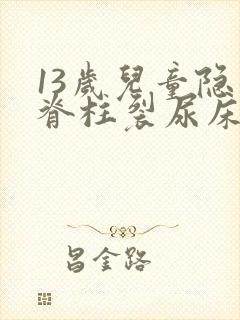 13歲兒童隐
脊柱裂尿床
昌金路